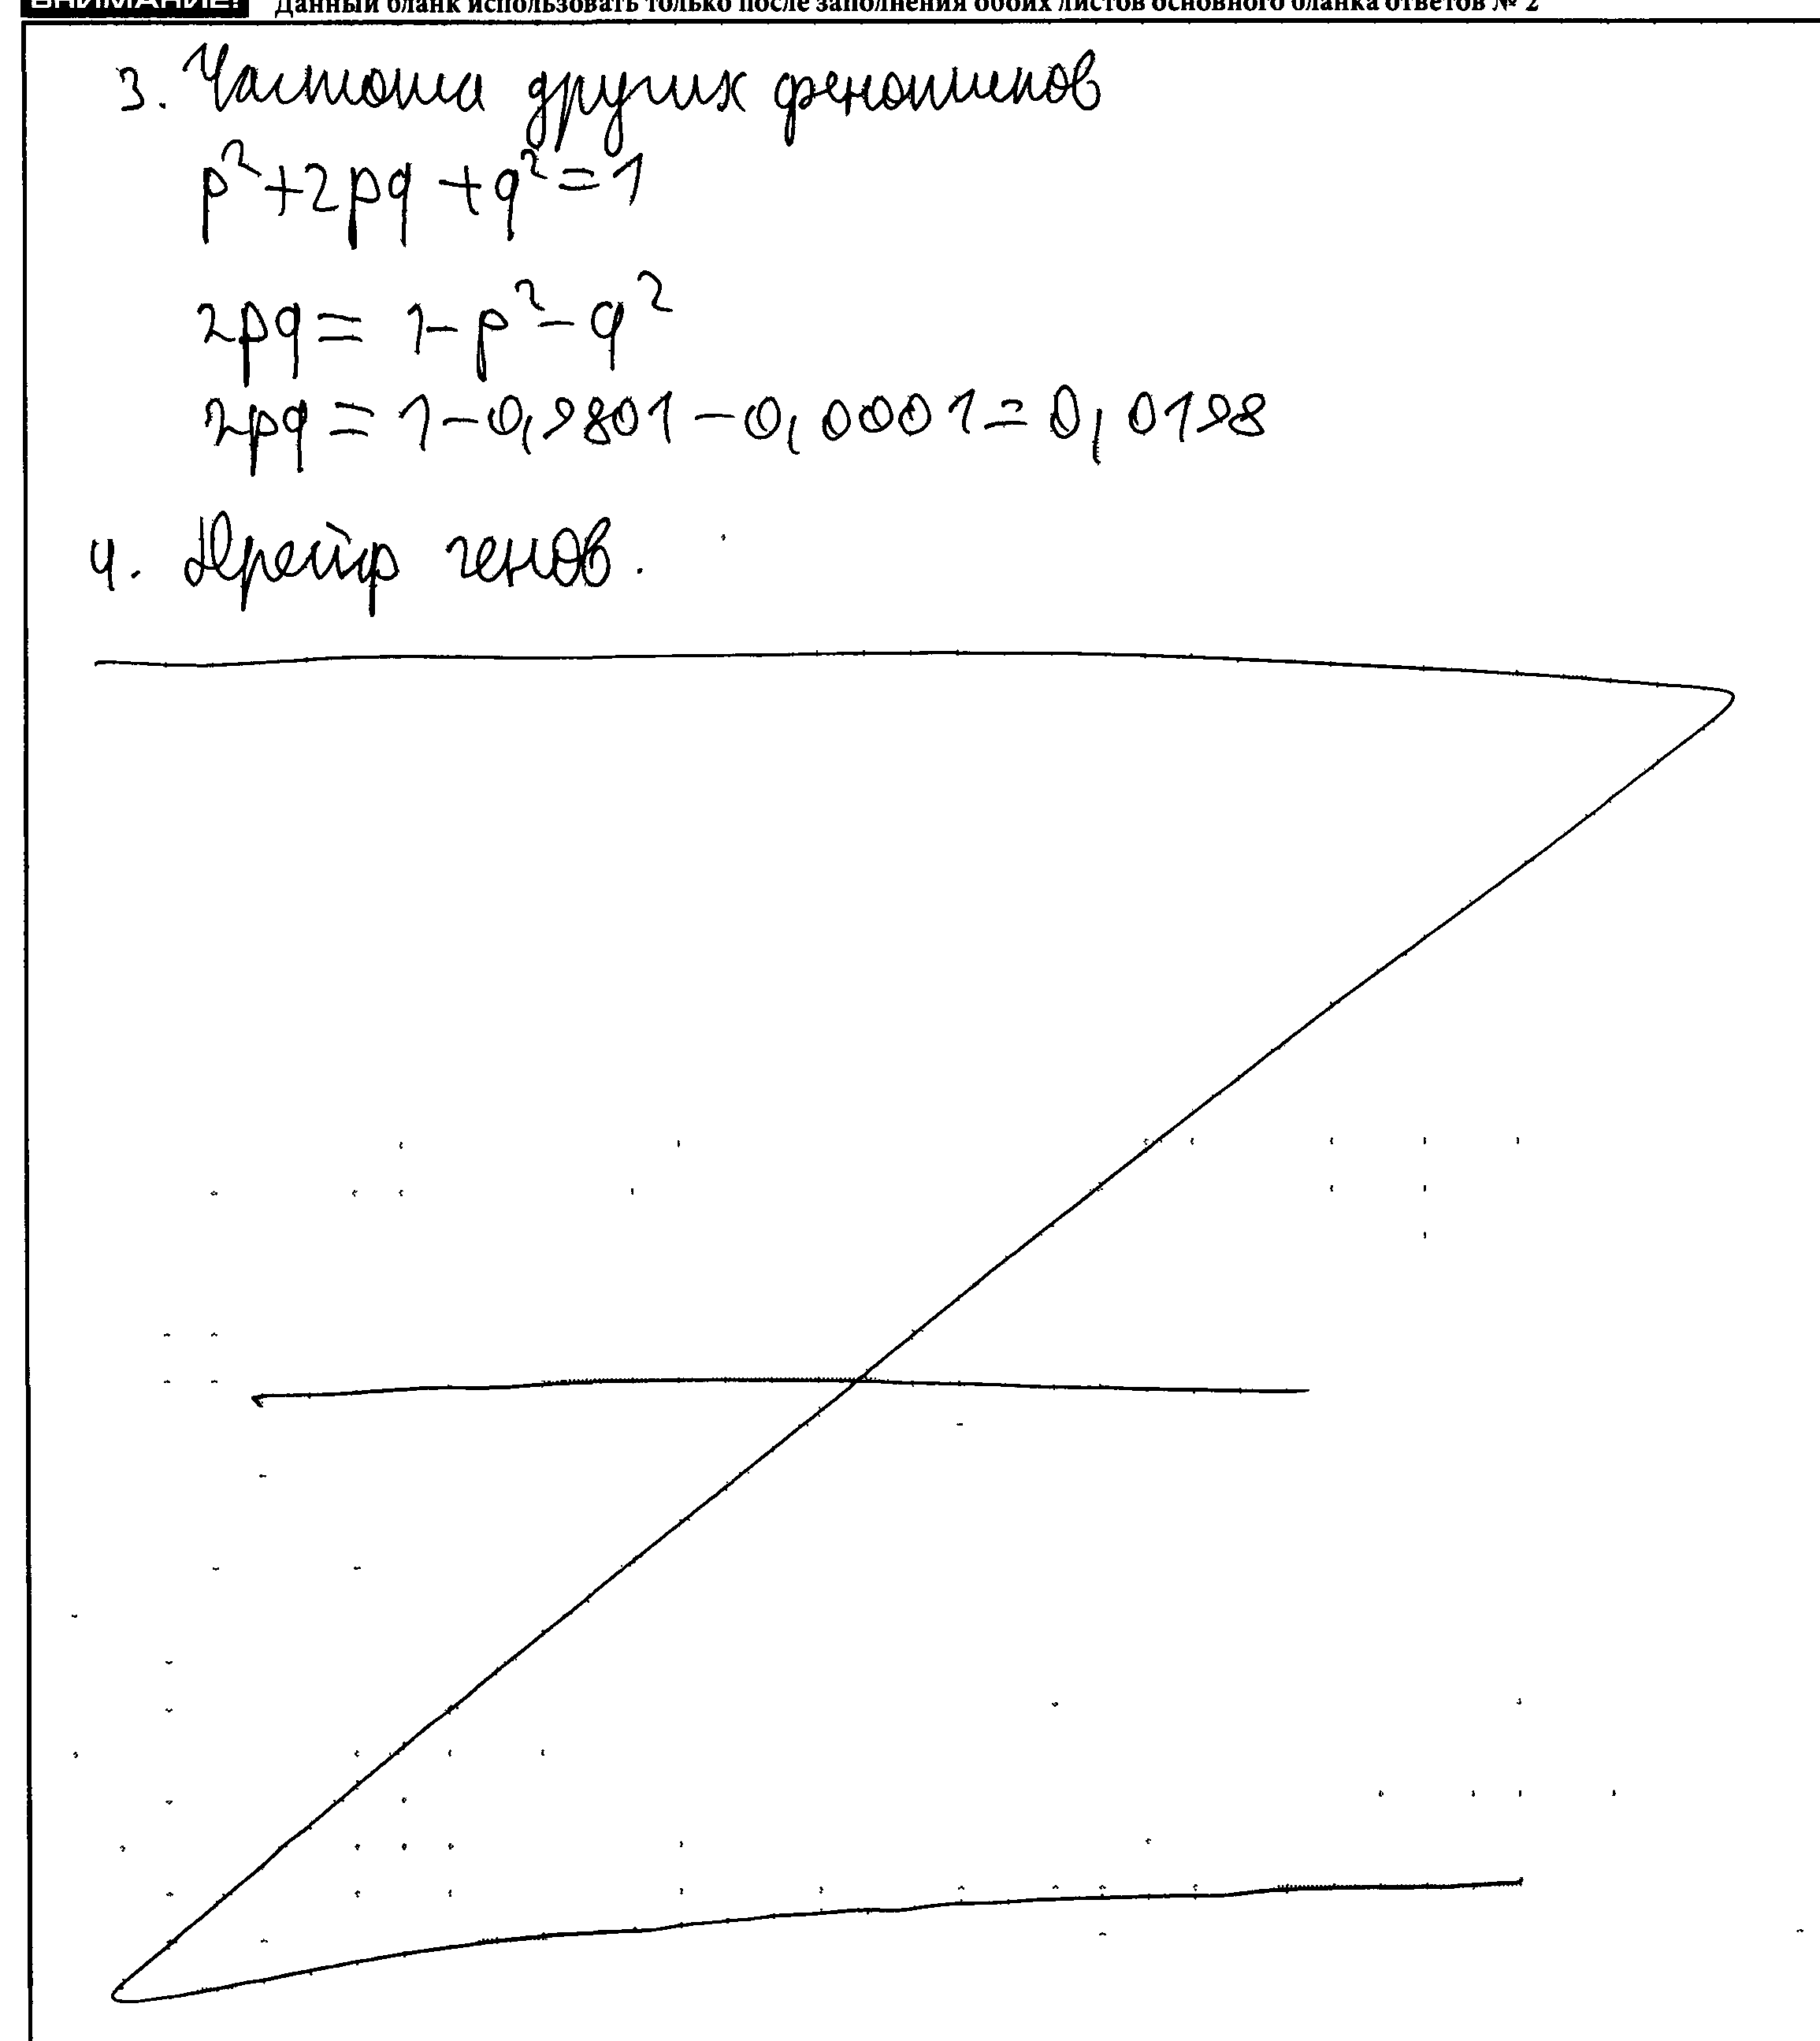 ВНИМАНИЕ! Данный бланк использовать только после заполнения обоих листов основного бланка ответов № 2
3. Частота других фенотипов
p²+2pq+q²=1
2pq = 1-p²-q²
2pq = 1-0,9801-0,0001=0,0198
4. Дрейф генов.